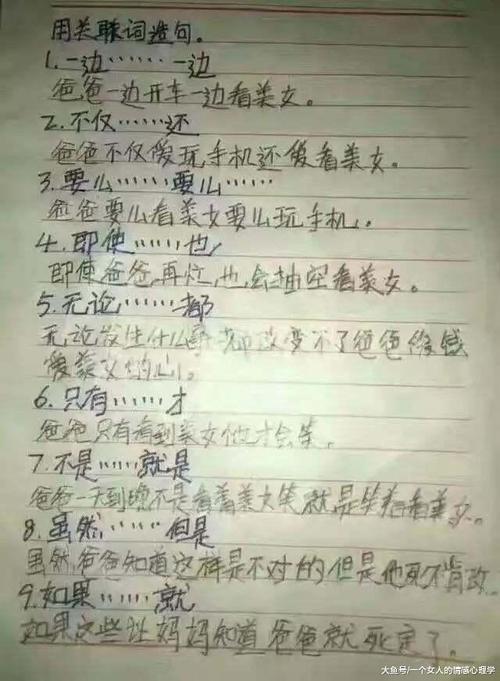 用关联词造句。
1.一边……一边
爸爸一边开车一边看美女。
2.不仅……还
爸爸不仅爱玩手机还爱看美女。
3.要么……要么……
爸爸要么看美女要么玩手机。
4.即使……也
即使爸爸再忙,也会抽空看美女。
5.无论……都
无论发生什么事都改变不了爸爸
爱美女的心。
6.只有……才
爸爸只有看到美女他才会笑。
7.不是……就是
爸爸一天到晚不是看着美女笑就是笑着看美女。
8.虽然……但是
虽然爸爸知道这样是不对的但是他死不肯改。
9.如果……就
如果这些让妈妈知道爸爸就死定了。
大鱼号/一个女人的情感心理学